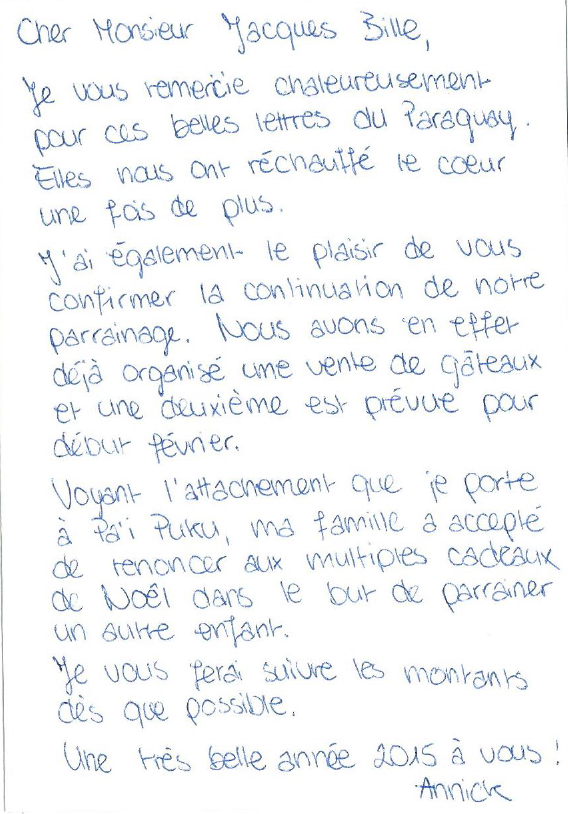 Cher Monsieur Jacques Bille,
Je vous remercie chaleureusement
pour ces belles lettres du Paraguay.
Elles nous ont réchauffé le coeur
une fois de plus.
J'ai également le plaisir de vous
confirmer la continuation de notre
parrainage. Nous avons en effet
déjà organisé une vente de gâteaux
et une deuxième est prévue pour
début février.
Voyant l'attachement que je porte
à Pa'i Puku, ma famille a accepté
de renoncer aux multiples cadeaux
de Noël dans le but de parrainer
un autre enfant.
Je vous ferai suivre les montants
dès que possible.
Une très belle année 2015 à vous !
Annick